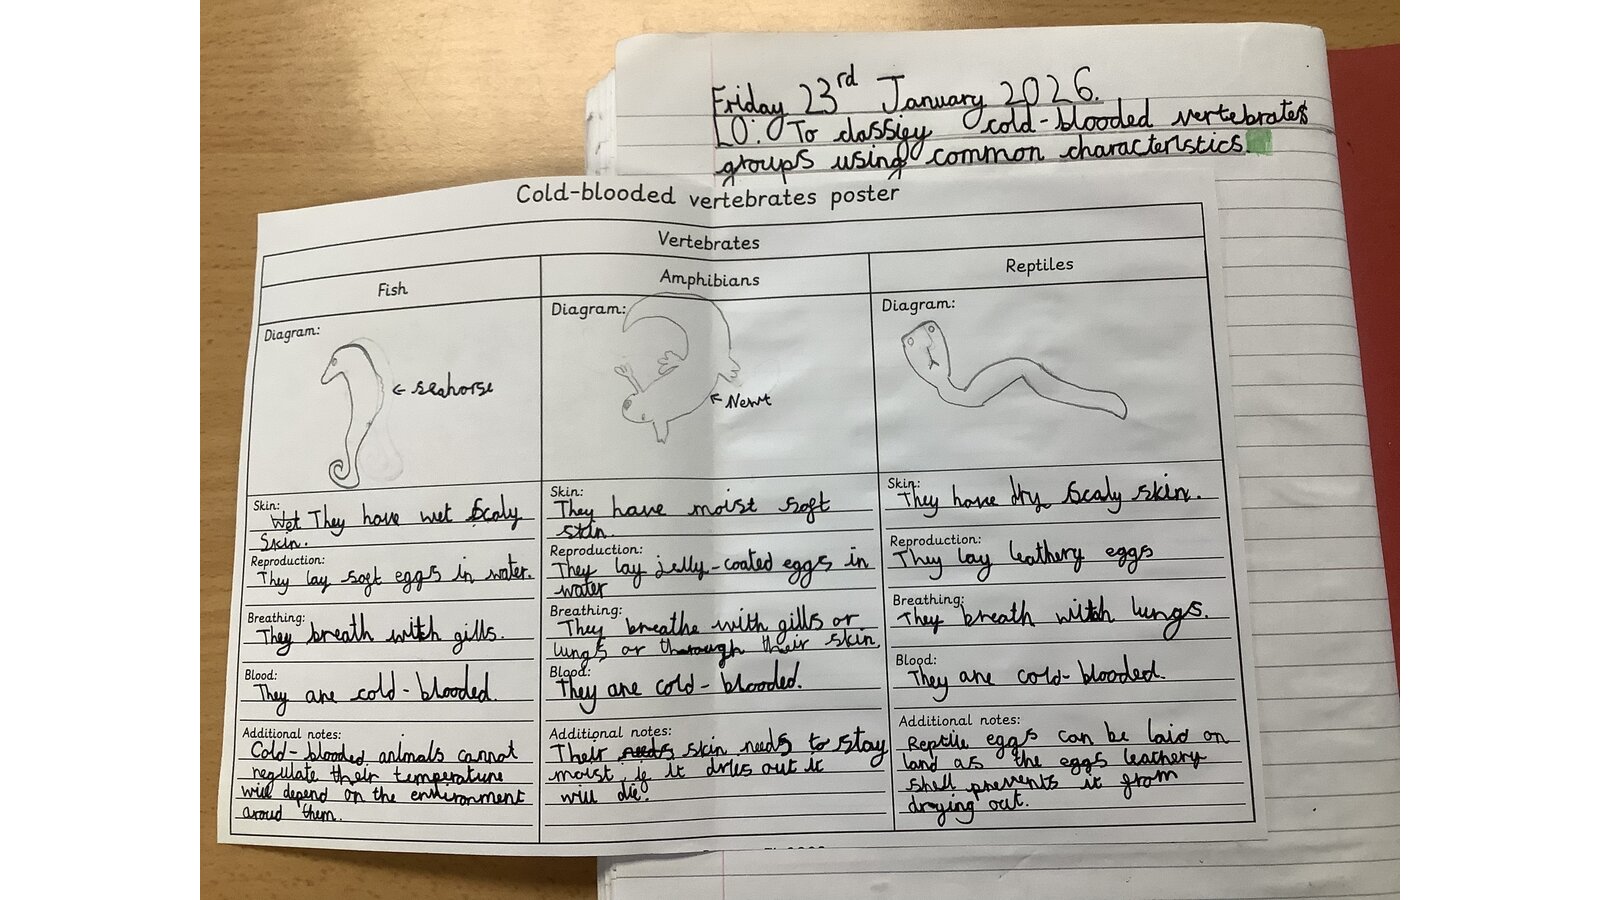 Friday 23rd January 2026.
LO: To classify cold-blooded vertebrates
groups using common characteristics.
Cold-blooded vertebrates poster
Vertebrates
Fish
Diagram:
← seahorse
Skin:
Wet They have wet scaly
skin.
Reproduction:
They lay soft eggs in water.
Breathing:
They breath with gills.
Blood:
They are cold-blooded.
Additional notes:
Cold-blooded animals cannot
regulate their temperature
will depend on the environment
aroud them.
Amphibians
Diagram:
Newt
Skin:
They have moist soft
skin.
Reproduction:
They lay jelly-coated eggs in
water
Breathing:
They breathe with gills or
lungs or through their skin.
Blood:
They are cold-blooded.
Additional notes:
Their needs skin needs to stay
moist, if it dries out it
will die.
Reptiles
Diagram:
Skin:
They have dry scaly skin.
Reproduction:
They lay leathery eggs
Breathing:
They breath with lungs.
Blood:
They are cold-blooded.
Additional notes:
Reptile eggs can be laid on
land as the eggs leathery
shell prevents it from
drying out.